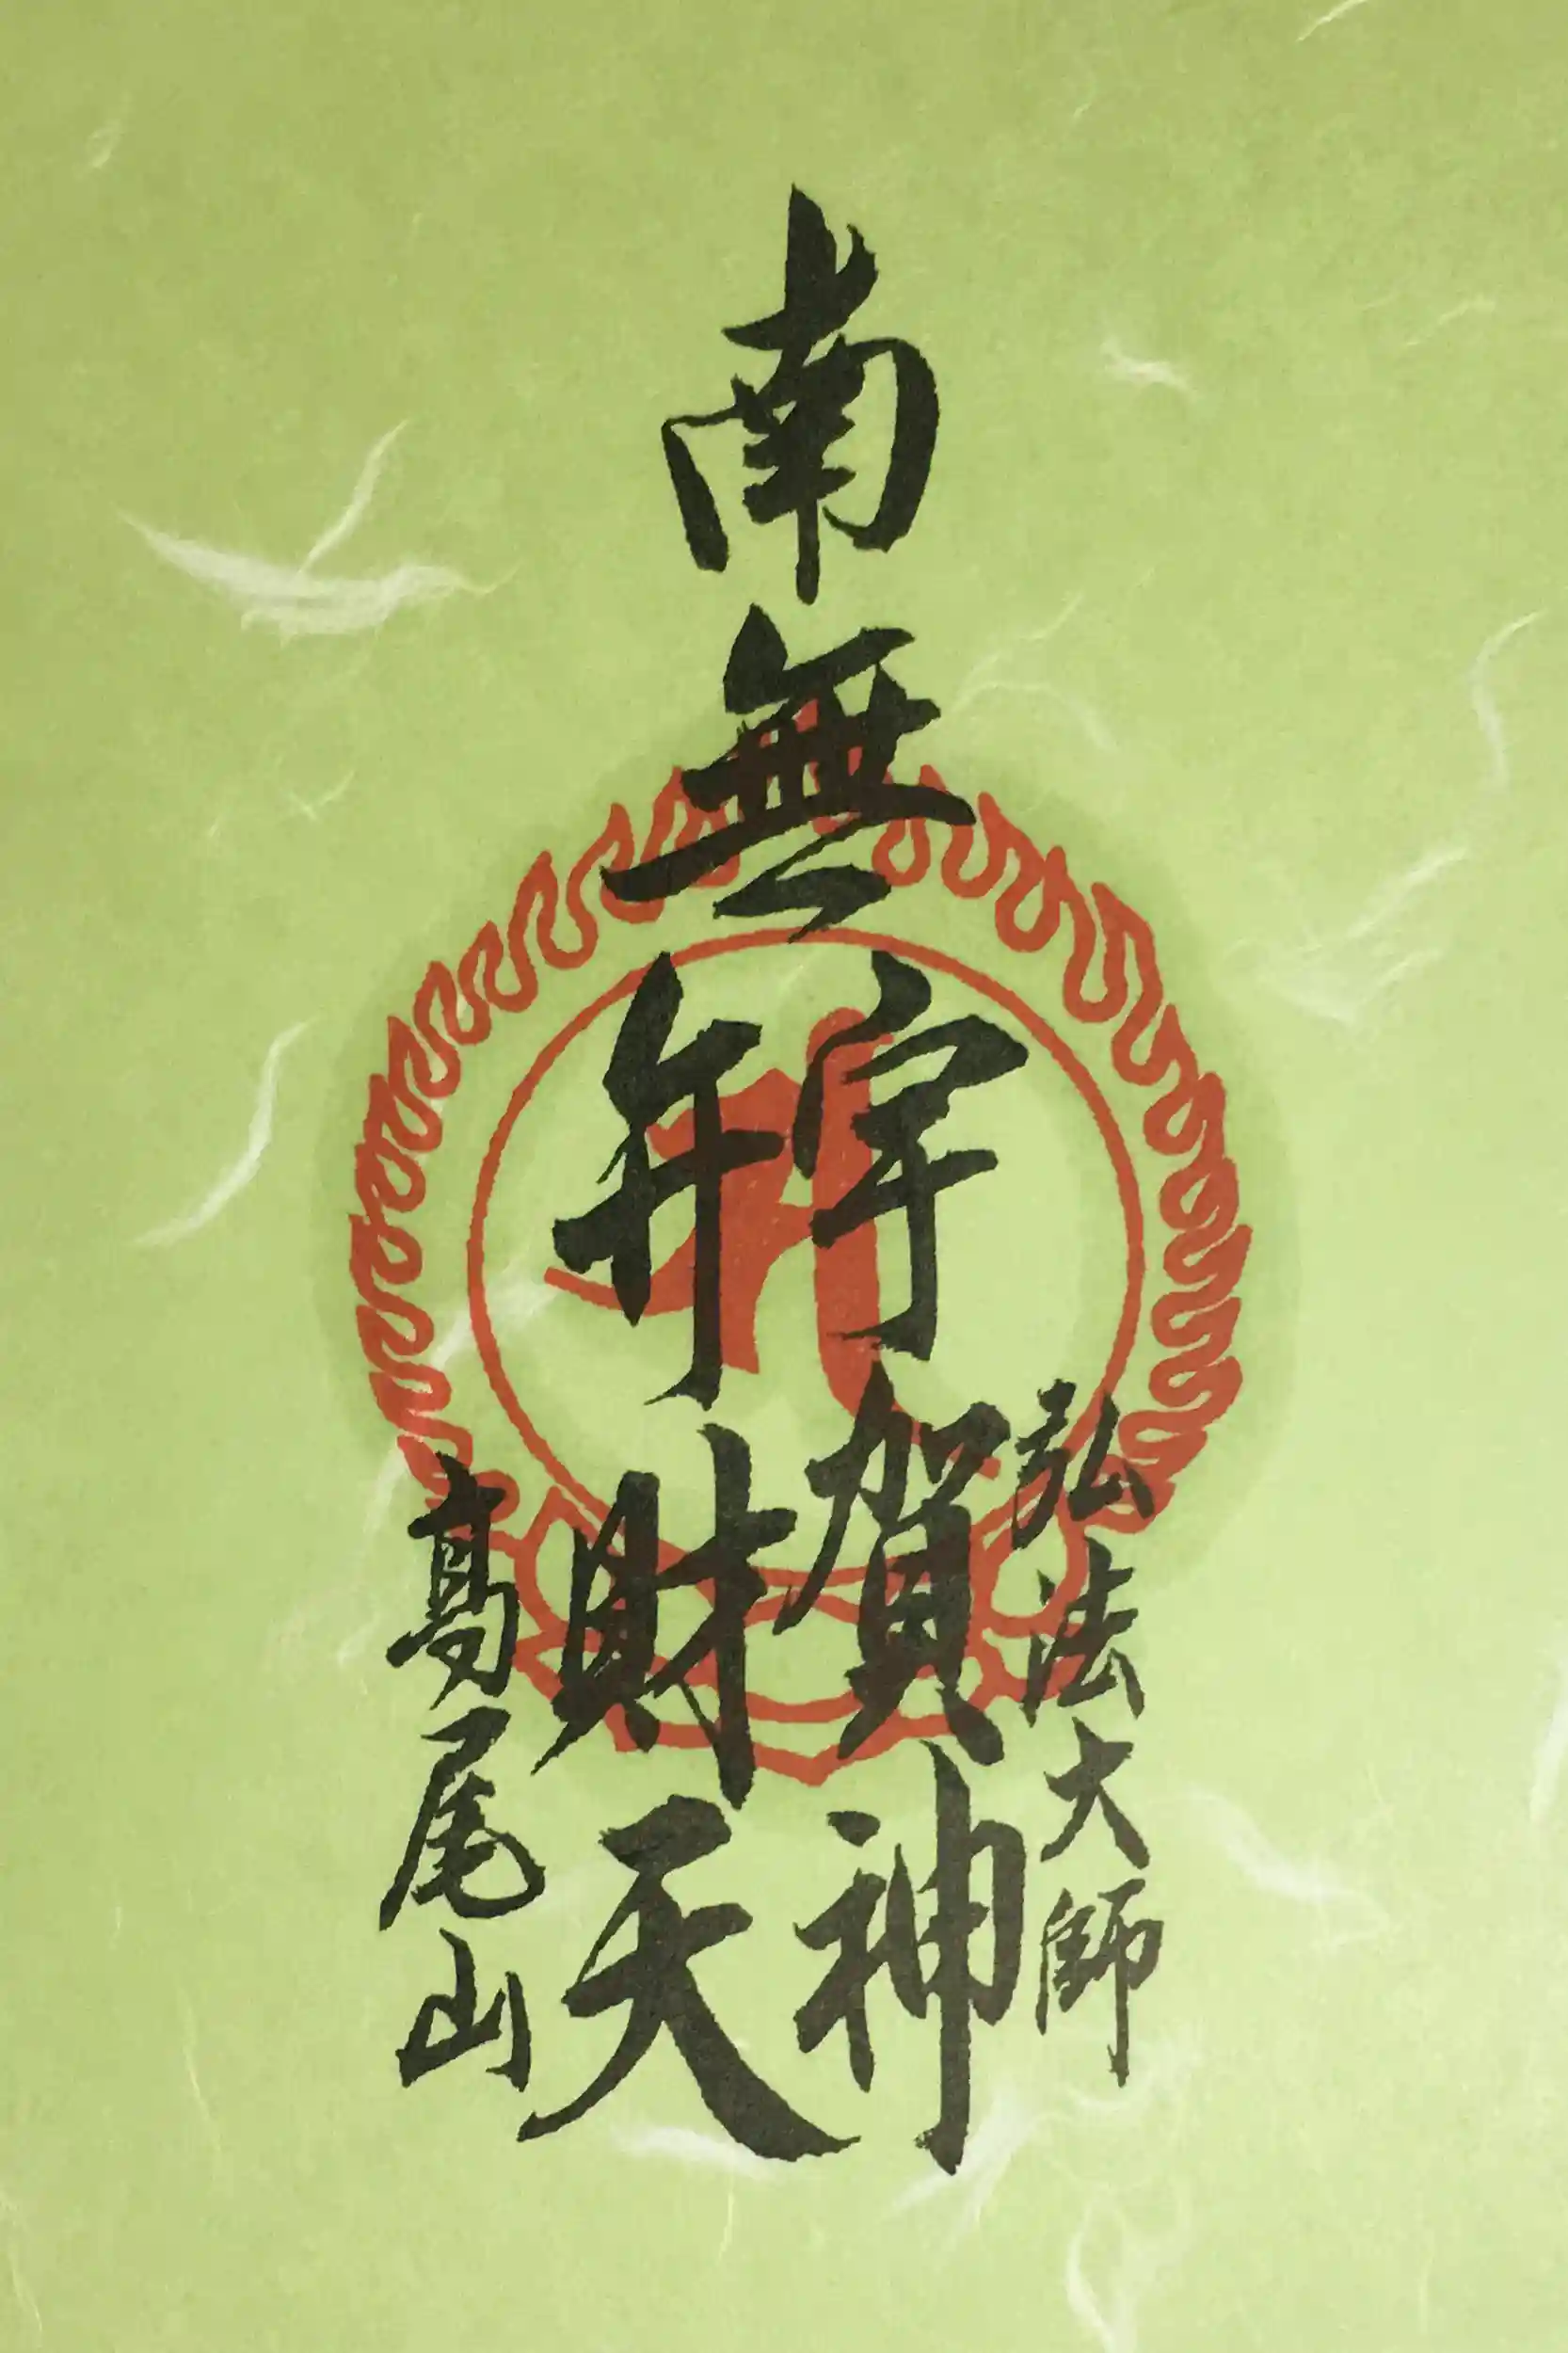 南無
弘法大師
宇賀神
弁財天
高尾山